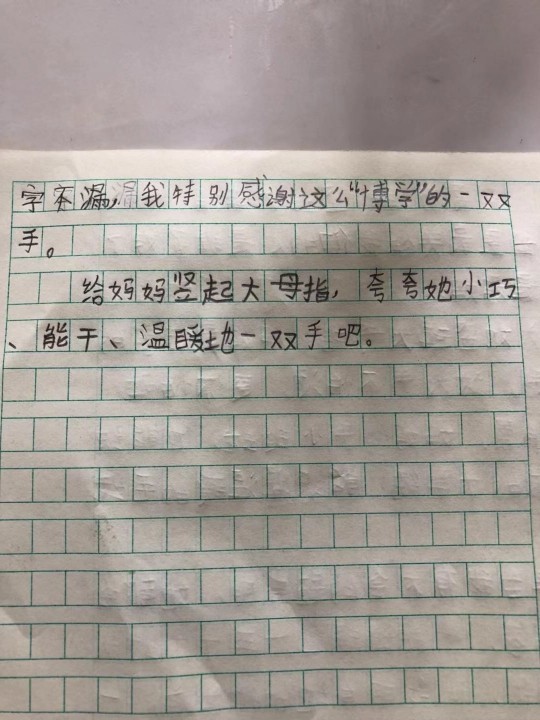 字不漏,我特别感谢这么“博学”的一双
手。
给妈妈竖起大母指,夸夸她小巧
、能干、温暖地一双手吧。